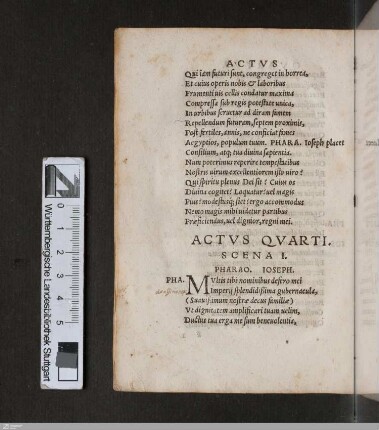 ACTVS
Qui iam futuri sunt, congreget in horrea,
Et cuius operis nobis & laboribus
Frumenti uis cellis condatur maxima
Compressa sub regis potestate unica,
In urbibus seruetur ad diram famem
Repellendam futuram, septem proximis,
Post fertiles, annis, ne conficiat fames
Aegyptios, populum tuum. PHARA. Ioseph placet
Consilium, atq; tua diuina sapientia.
Num poterimus reperire tempestatibus
Nostris uirum excellentiorem isto uiro?
Qui spiritu plenus Dei sit? Cuius os
Diuina cogitet? Loquatur? uel magis
Pius? modestusq; siet? ergo accommodus
Nemo magis mihi uidetur partibus
Præficiendus, uel dignior, regni mei.
ACTVS QVARTI.
SCENA I.
PHARAO. IOSEPH.
PHA. Multis tibi nominibus dextro mei
Imperij splendidissima gubernacula,
(Suauissimum nostræ decus familiæ)
Vt dignitatem amplificari tuam uelim,
Ductus tua erga me sum beneuolentia,
Württembergische Landesbibliothek Stuttgart
0
1
2
3
4
5